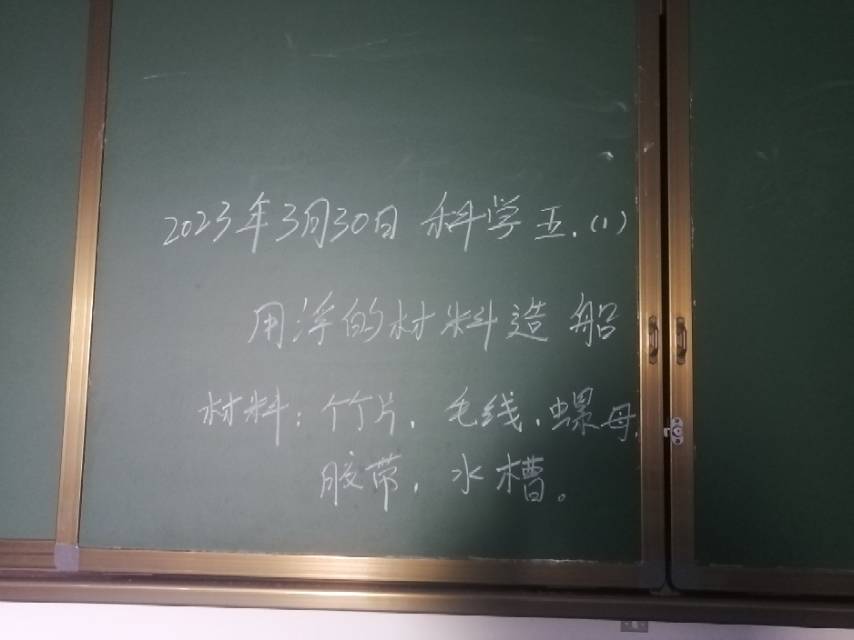 2023年3月30日 科学 五.(1)
用浮的材料造船
材料:竹片,毛线,螺母,
胶带,水槽。